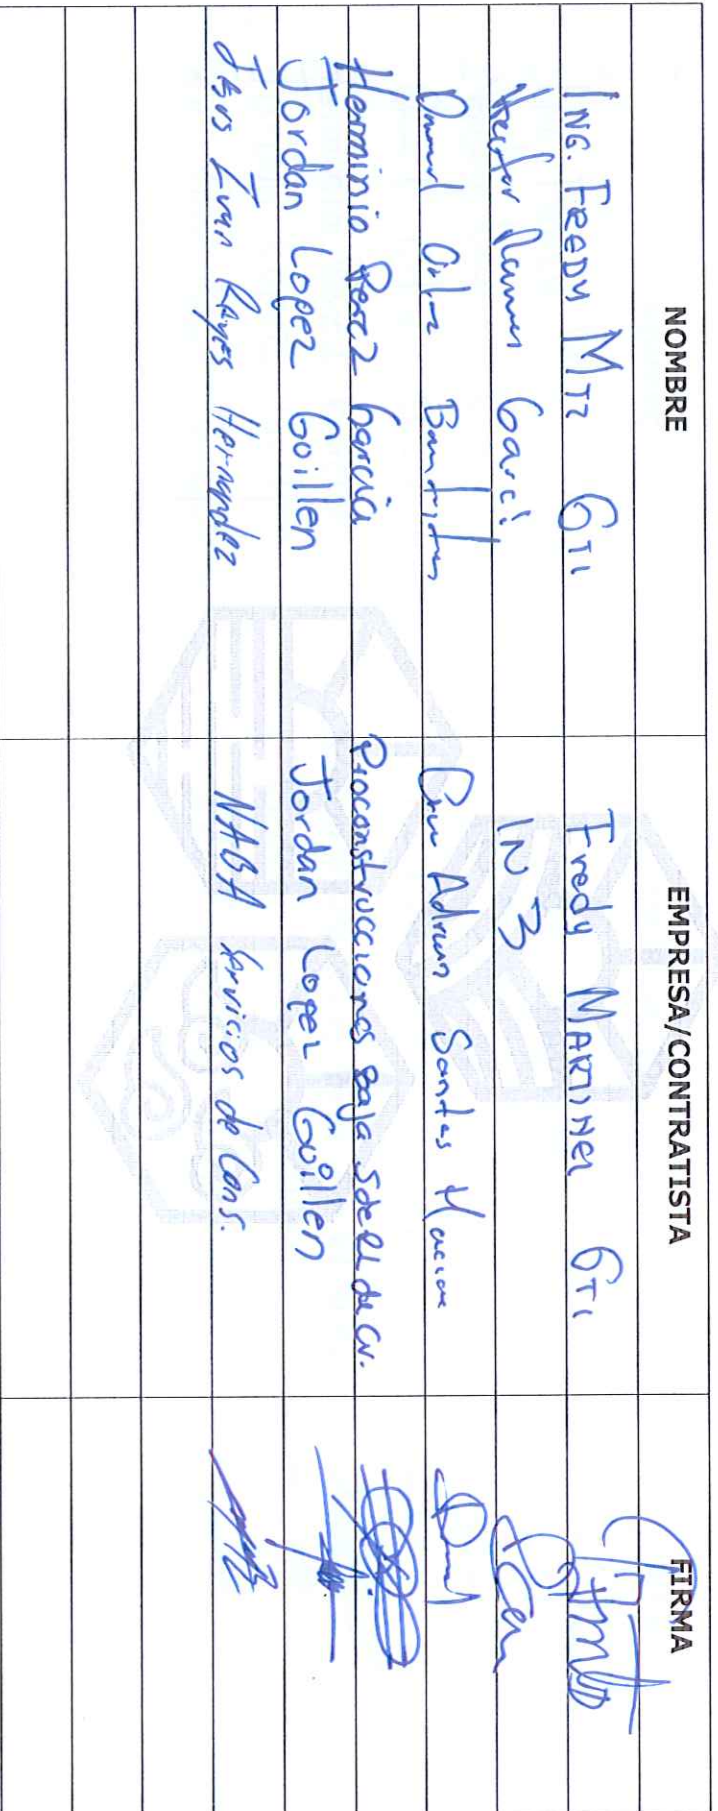 NOMBRE EMPRESA/CONTRATISTA FIRMA
ING. FREDY MTZ GTI Fredy MARTINEZ GTI
Hector Ramos Garci IN 3
Adrian Santos
Herminio Perez Garcia Proconstrucciones Baja S de RL de CV.
Jordan Lopez Guillen Jordan Lopez Guillen
Jesus Ivan Reyes Hernandez NABA Servicios de Cons.